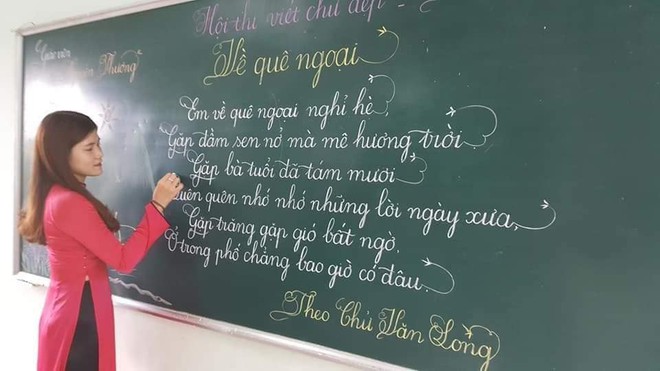 Hội thi viết chữ đẹp
Giáo viên
Thương
Về quê ngoại
Em về quê ngoại nghỉ hè,
Gặp đầm sen nở mà mê hương trời.
Gặp bà tuổi đã tám mươi
quên nhớ nhớ những lời ngày xưa,
Gặp trăng gặp gió bất ngờ,
Ở trong phố chẳng bao giờ có đâu.
Theo Chử Văn Long